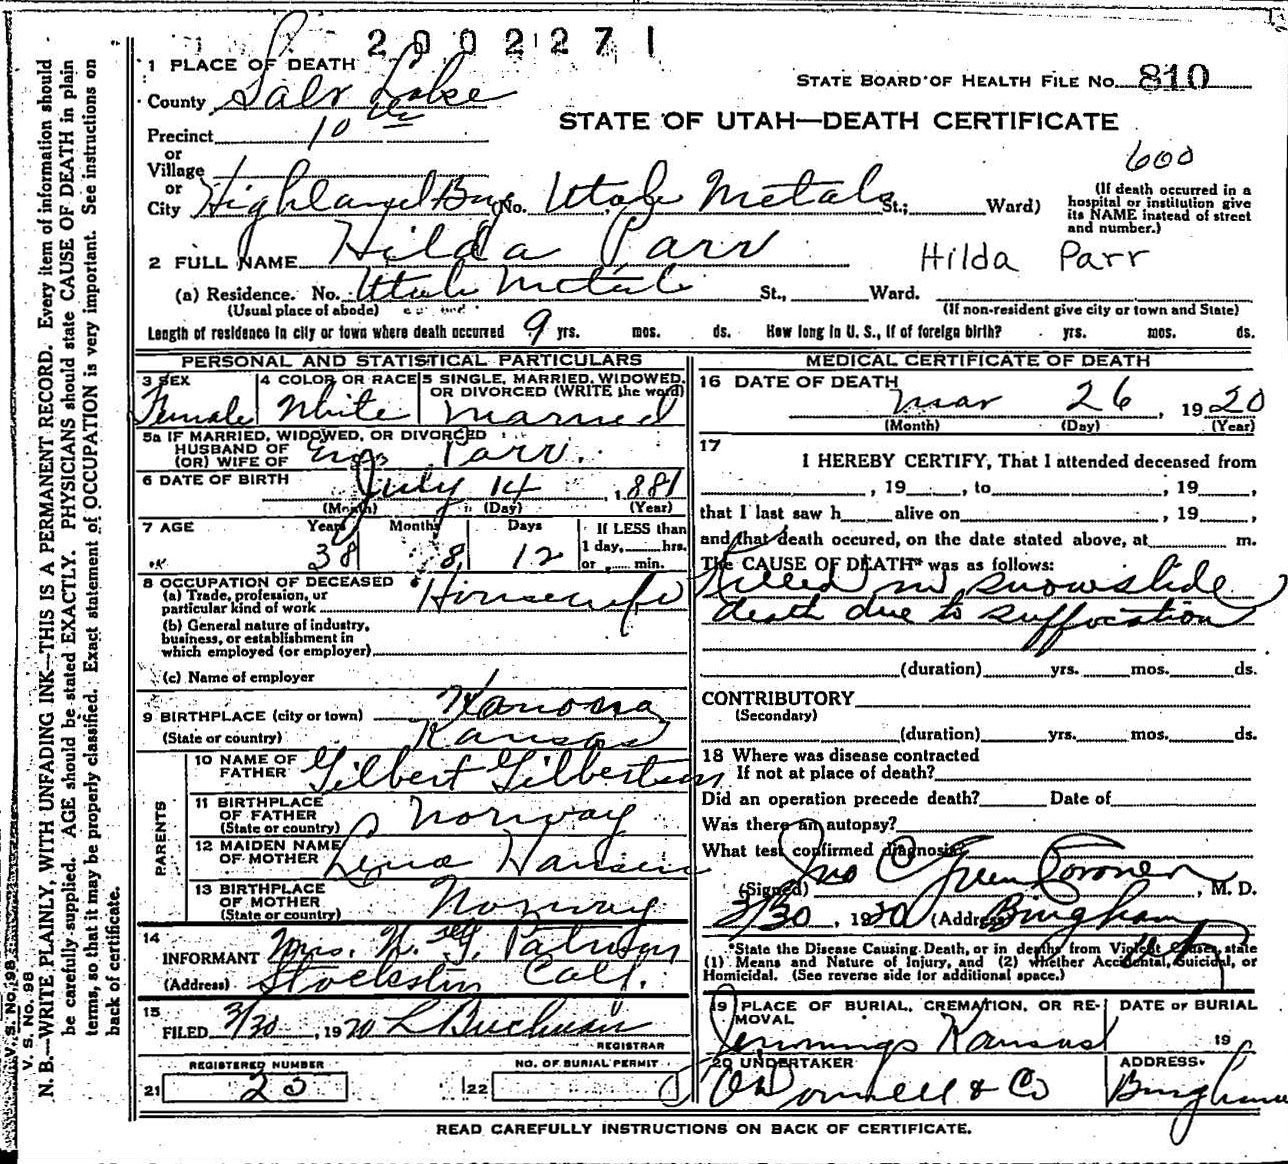 2002271
1 PLACE OF DEATH
STATE BOARD OF HEALTH FILE No. 810
County Salt Lake
STATE OF UTAH—DEATH CERTIFICATE
Precinct 10
or
Village
or
600
City Highland No. Utah Metals St.; Ward)
(If death occurred in a hospital or institution give its NAME instead of street and number.)
2 FULL NAME Hilda Parr
Hilda Parr
(a) Residence. No. Utah Metals St., Ward.
(Usual place of abode)
(If non-resident give city or town and State)
Length of residence in city or town where death occurred 9 yrs. mos. ds. How long in U. S., if of foreign birth? yrs. mos. ds.
PERSONAL AND STATISTICAL PARTICULARS
3 SEX Female
4 COLOR OR RACE White
5 SINGLE, MARRIED, WIDOWED, OR DIVORCED (WRITE the word) Married
5a IF MARRIED, WIDOWED, OR DIVORCED
HUSBAND OF
(OR) WIFE OF Parr
6 DATE OF BIRTH July 14, 1881
(Month) (Day) (Year)
7 AGE Years 38 Months 8 Days 12
If LESS than
1 day, hrs.
or min.
8 OCCUPATION OF DECEASED
(a) Trade, profession, or
particular kind of work Housewife
(b) General nature of industry,
business, or establishment in
which employed (or employer)
(c) Name of employer
9 BIRTHPLACE (city or town)
(State or country) Kansas
PARENTS
10 NAME OF FATHER Gilbert Gilbertson
11 BIRTHPLACE OF FATHER (State or country) Norway
12 MAIDEN NAME OF MOTHER Lena Hansen
13 BIRTHPLACE OF MOTHER (State or country) Norway
14
INFORMANT Mrs.
(Address) Stockton Calf.
15
FILED 3/30, 1920 L Buchman
REGISTRAR
REGISTERED NUMBER
21 20
NO. OF BURIAL PERMIT
22
MEDICAL CERTIFICATE OF DEATH
16 DATE OF DEATH Mar 26, 1920
(Month) (Day) (Year)
17
I HEREBY CERTIFY, That I attended deceased from
, 19 , to , 19 ,
that I last saw h alive on , 19 ,
and that death occured, on the date stated above, at m.
The CAUSE OF DEATH* was as follows:
Killed in snowslide
death due to suffocation
(duration) yrs. mos. ds.
CONTRIBUTORY
(Secondary)
(duration) yrs. mos. ds.
18 Where was disease contracted
If not at place of death?
Did an operation precede death? Date of
Was there an autopsy?
What test confirmed diagnosis?
(Signed) Jno C Green Coroner, M. D.
3/30, 1920 (Address) Bingham
*State the Disease Causing Death, or in deaths from Violent Causes, state
(1) Means and Nature of Injury, and (2) whether Accidental, Suicidal, or
Homicidal. (See reverse side for additional space.)
19 PLACE OF BURIAL, CREMATION, OR REMOVAL
Jennings Kansas
DATE OF BURIAL
19
20 UNDERTAKER
O'Donnell & Co
ADDRESS.
Bingham
READ CAREFULLY INSTRUCTIONS ON BACK OF CERTIFICATE.
V. S. No. 98
V. S. No. 98
N. B.—WRITE PLAINLY, WITH UNFADING INK—THIS IS A PERMANENT RECORD. Every item of information should
be carefully supplied. AGE should be stated EXACTLY. PHYSICIANS should state CAUSE OF DEATH in plain
terms, so that it may be properly classified. Exact statement of OCCUPATION is very important. See instructions on
back of certificate.